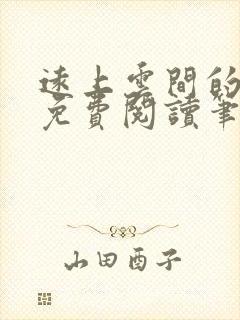 遠上雲間的
免費閱讀筆
山田酉子